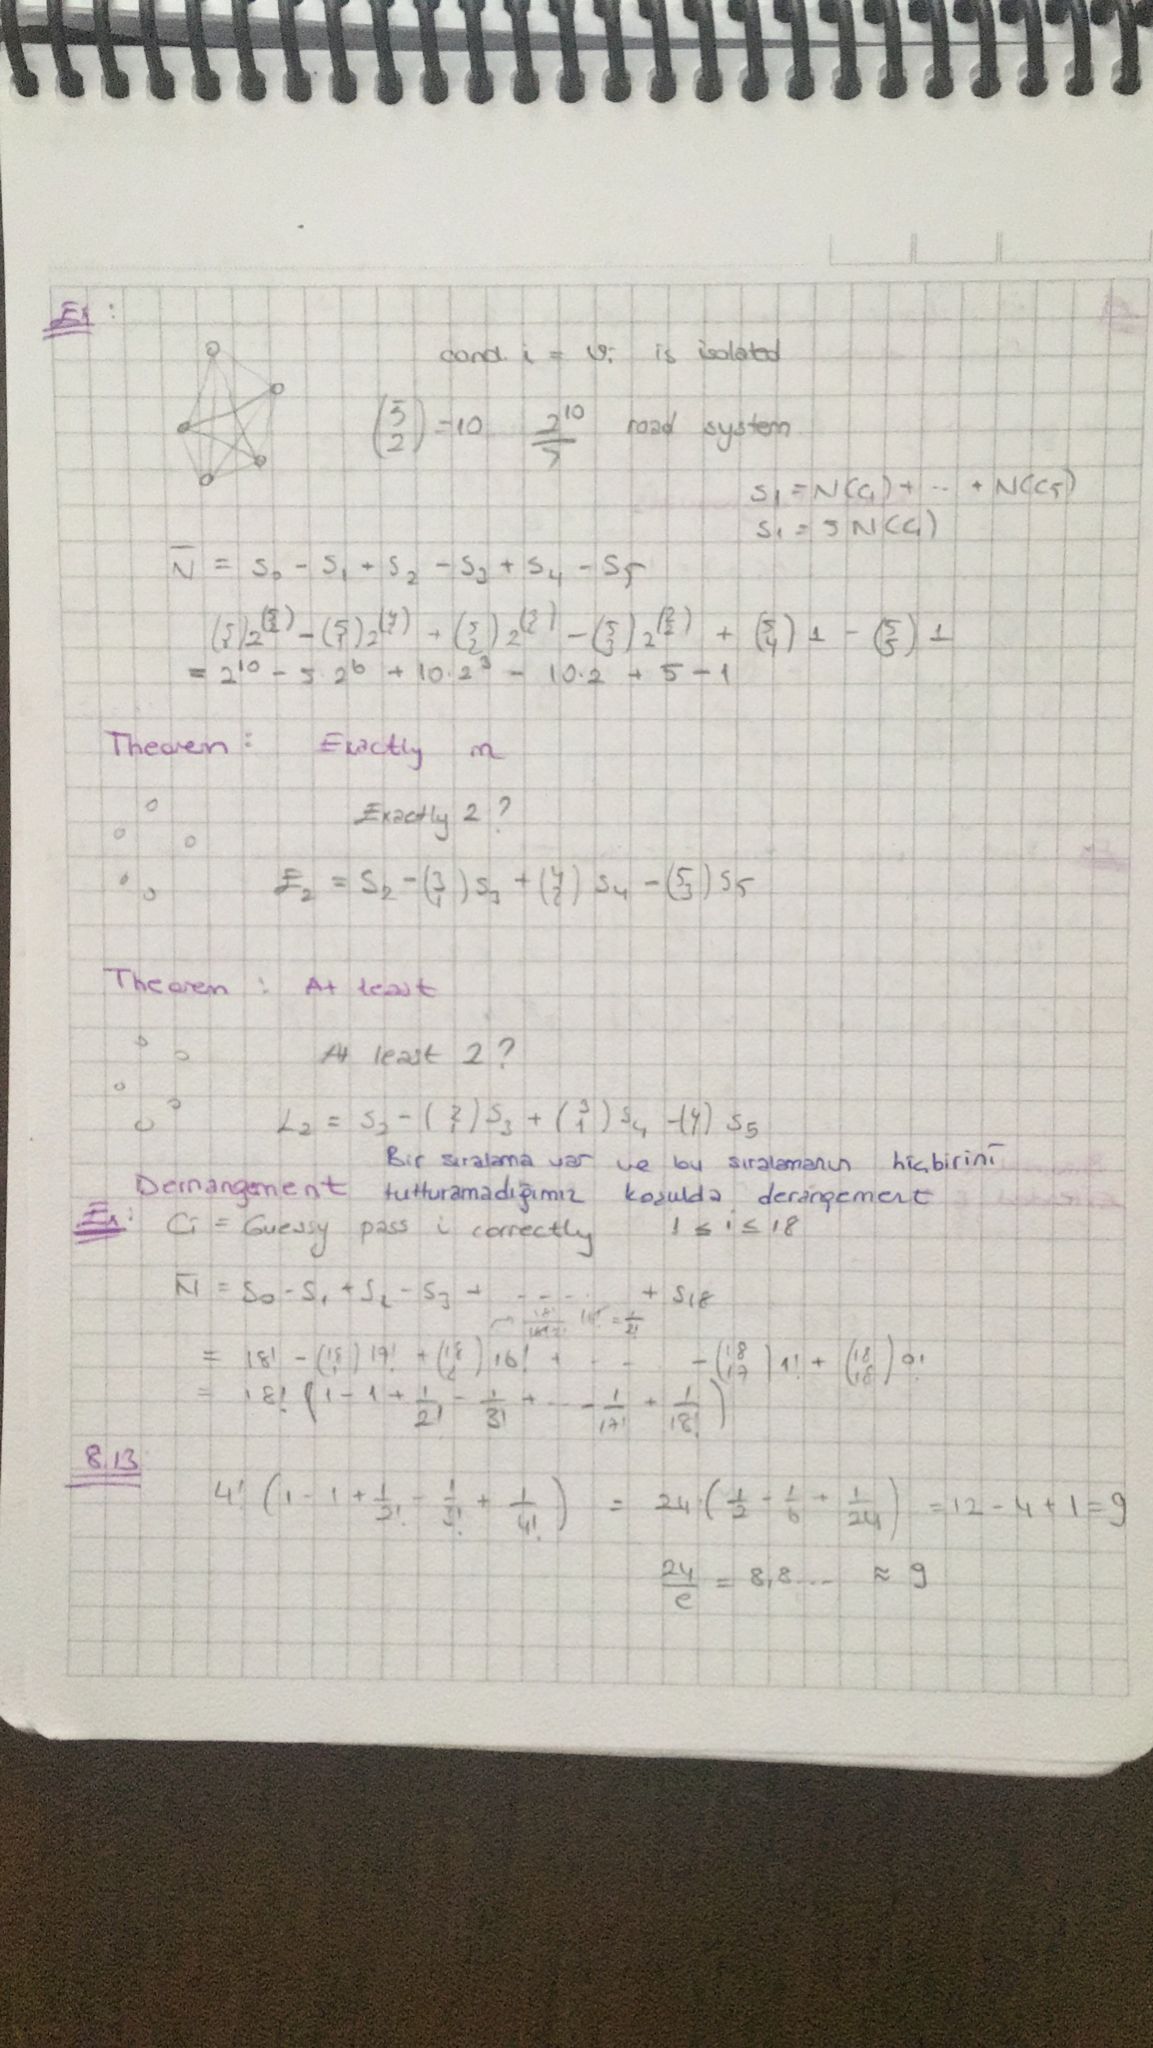 Ex:
cond. i = vi is isolated
(5 2) = 10 2^10 road system
S1 = N(C1) + ... + N(C5)
S1 = 5 N(C1)
N̄ = S0 - S1 + S2 - S3 + S4 - S5
2^(5 2) - (5 1) 2^(4 2) + (5 2) 2^(3 2) - (5 3) 2^(2 2) + (5 4) 1 - (5 5) 1
= 2^10 - 5 · 2^6 + 10 · 2^3 - 10 · 2 + 5 - 1
Theorem : Exactly m
Exactly 2 ?
E2 = S2 - (3 1) S3 + (4 2) S4 - (5 3) S5
Theorem : At least
At least 2 ?
L2 = S2 - (2 1) S3 + (3 1) S4 - (4 1) S5
Bir sıralama var ve bu sıralamanın hiçbirini
Derrangement tutturamadığımız koşulda derangement
Ex: Ci = Guessy pass i correctly 1 ≤ i ≤ 18
N̄ = S0 - S1 + S2 - S3 + ---- + S18
= 18! - (18 1) 17! + (18 2) 16! + - - - - (18 17) 1! + (18 18) 0!
= 18! (1 - 1 + 1/2! - 1/3! + -- - 1/17! + 1/18!)
8.13
4! (1 - 1 + 1/2! - 1/3! + 1/4!) = 24 (1/2 - 1/6 + 1/24) = 12 - 4 + 1 = 9
24/e = 8,8... ≈ 9